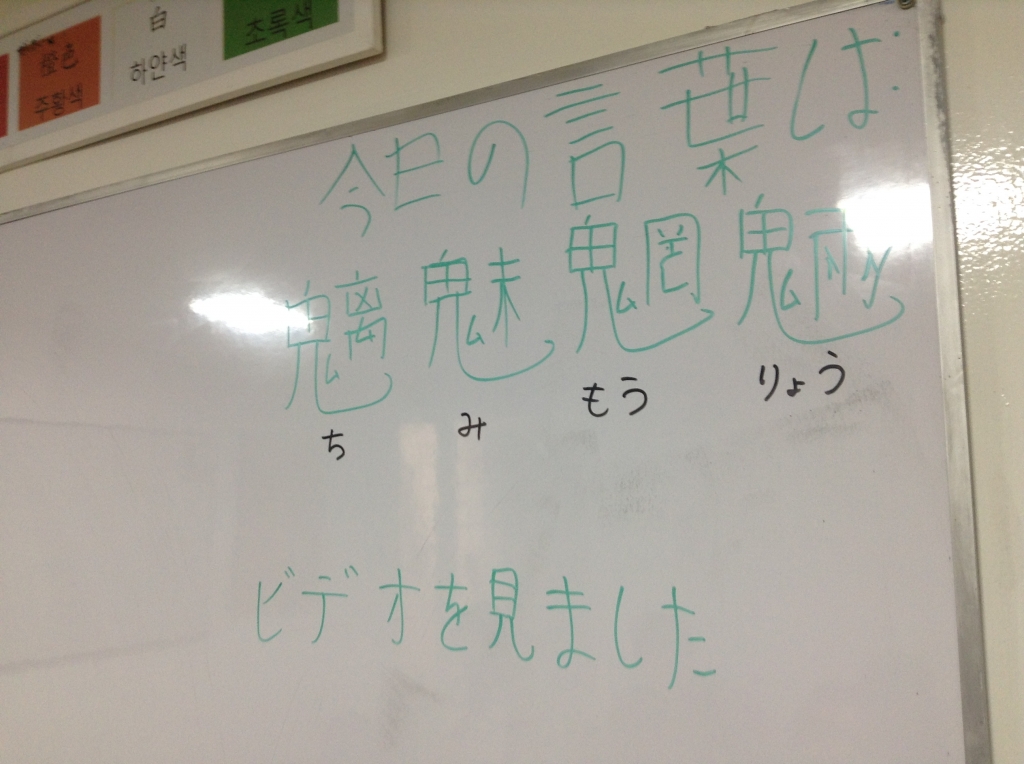 橙色 白
주황색 하얀색 초록색
今日の言葉は
魑魅魍魎
ち み もう りょう
ビデオを見ました